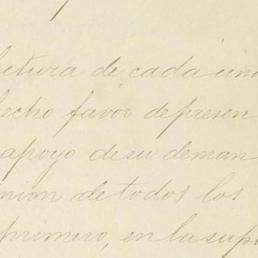 lectura de cada uno
hecho favor de presen
apoyo de su deman
nion de todos los
primero, en la supo